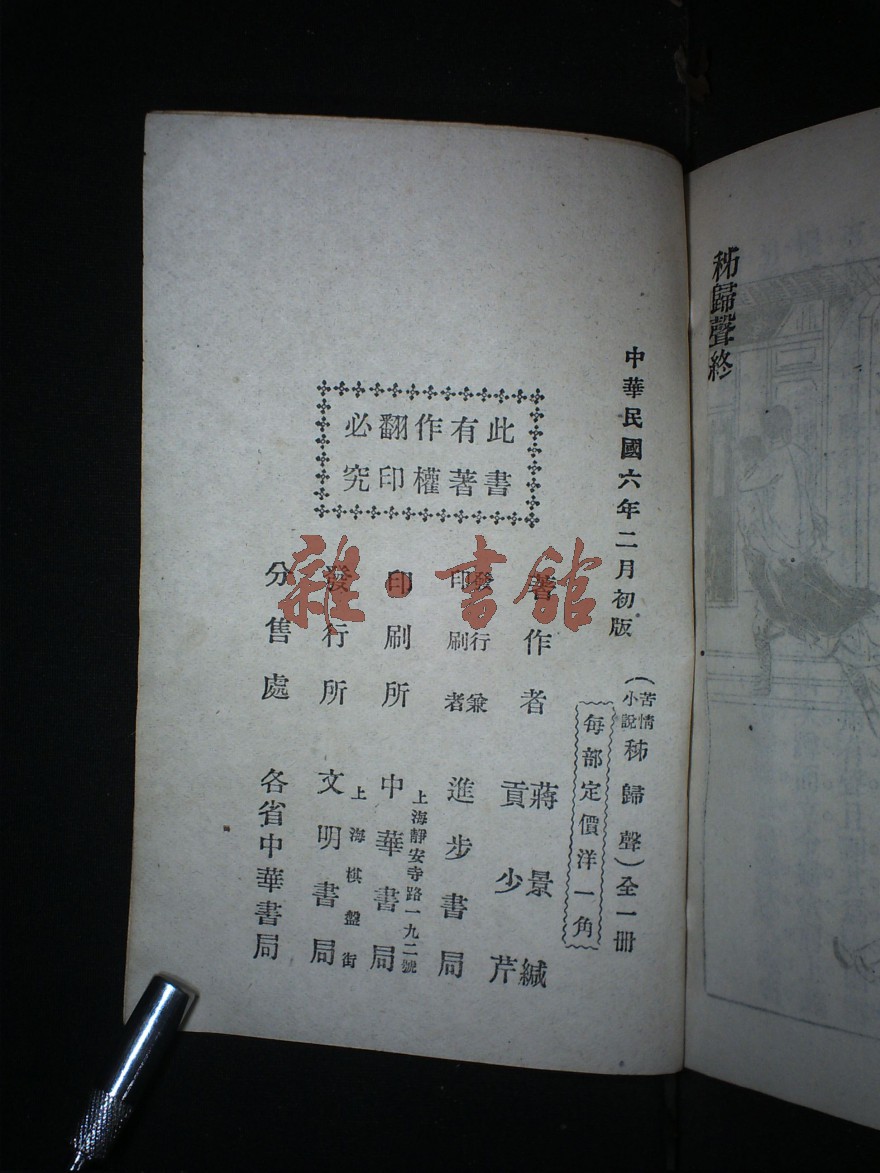 秭歸聲終
中華民國六年二月初版
（苦情小說秭歸聲）全一冊
每部定價洋一角
此書有著作權翻印必究
著作者 蔣景緘 貢少芹
發行兼印刷者 進步書局
印刷所 上海靜安寺路一九二號 中華書局
發行所 上海棋盤街 文明書局
分售處 各省中華書局
雜·書館